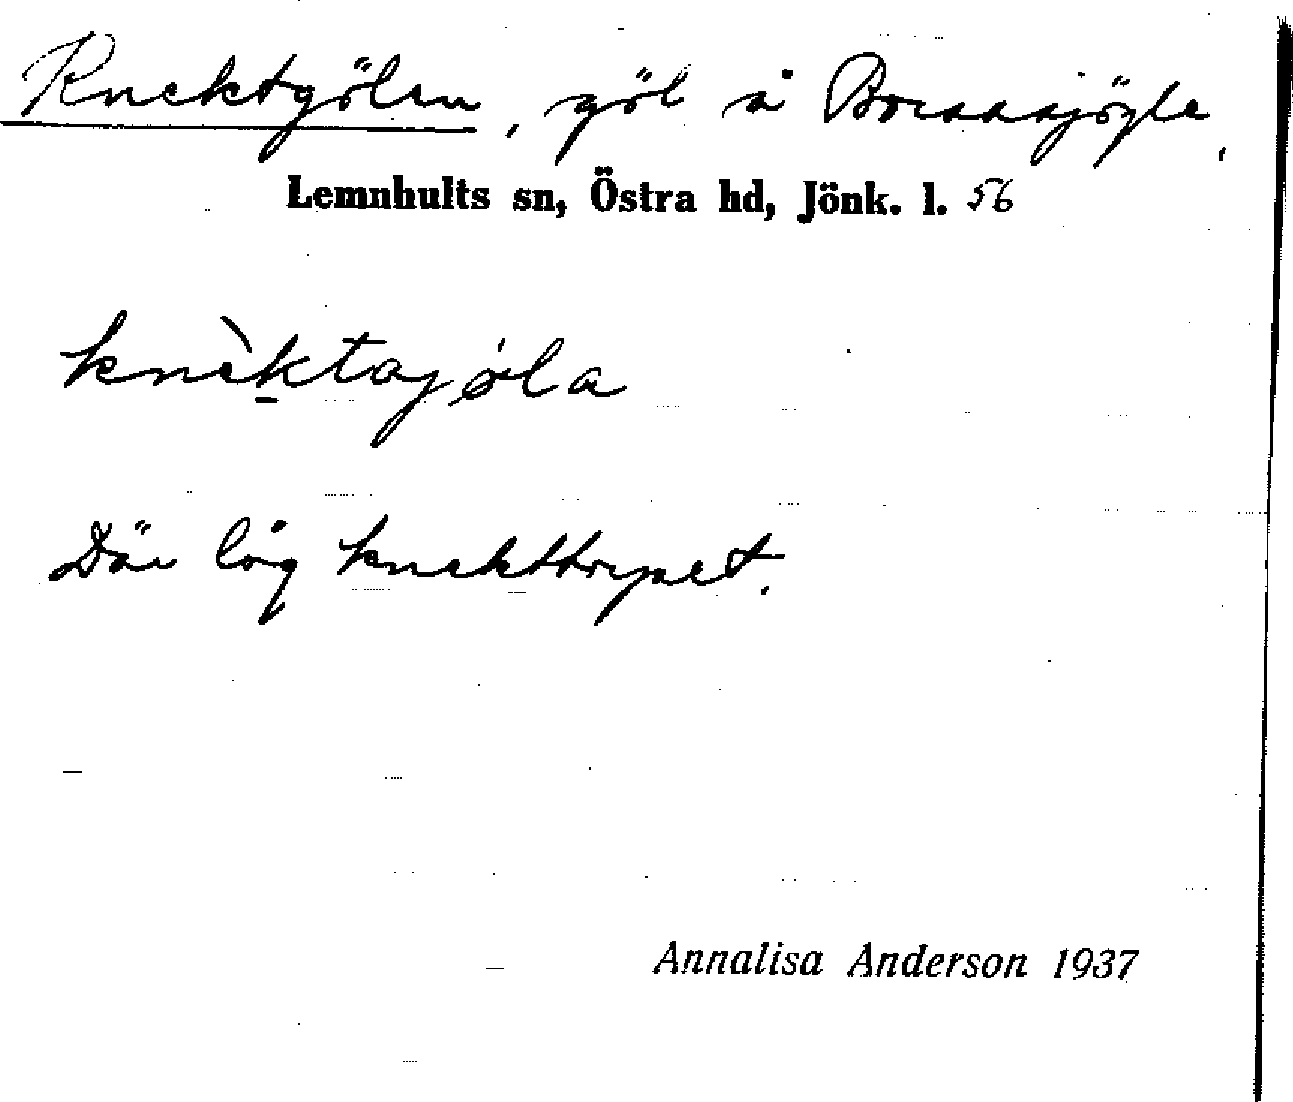 Knektgölen, göl å Boaasjögle,
Lemnhults sn, Östra hd, Jönk. l. 56
knèktajöla
Där låg knekttorpet.
Annalisa Anderson 1937